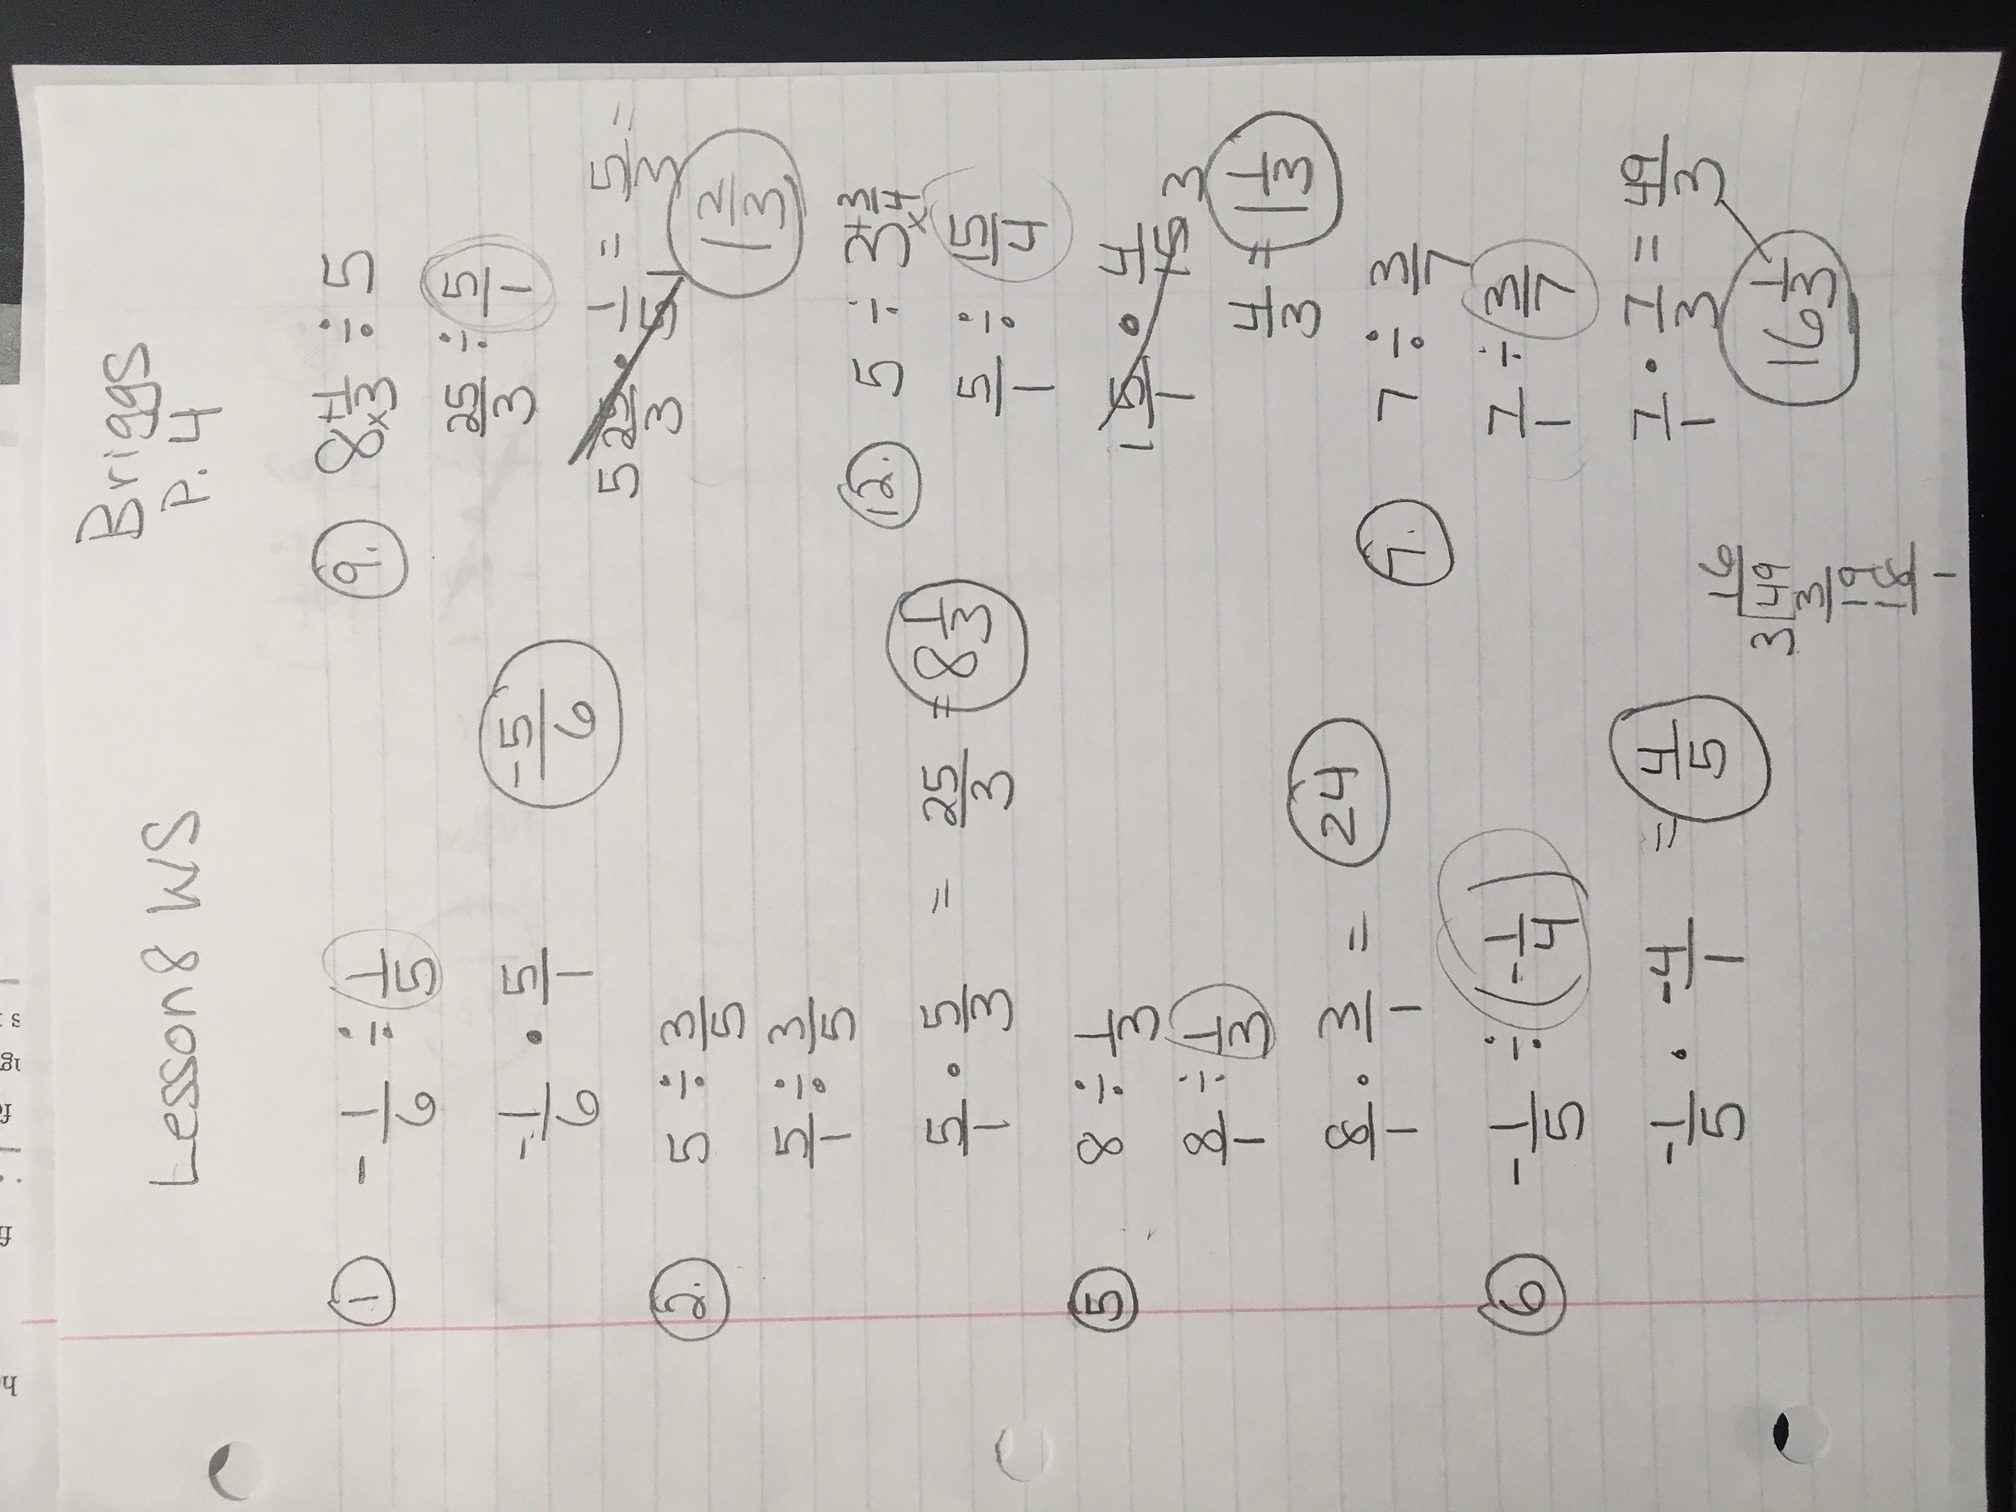 Lesson 8 WS
Briggs
P. 4
1
- 1/6 ÷ 1/5
-1/6 • 5/1
-5/6
2.
5 ÷ 3/5
5/1 ÷ 3/5
5/1 • 5/3 = 25/3 = 8 1/3
5
8 ÷ 1/3
8/1 ÷ 1/3
8/1 • 3/1 = 24
6
- 1/5 ÷ (-1/4)
- 1/5 • -4/1 = 4/5
9.
8 + 1/x3 ÷ 5
25/3 ÷ 5/1
5 25/3 • 1/5 1 = 5/3 =
1 2/3
12.
5 ÷ 3 + 3/x4
5/1 ÷ 15/4
1 5/1 • 4/15 3
4/3 = 1 1/3
7.
7 ÷ 3/7
7/1 ÷ 3/7
7/1 • 7/3 = 49/3
16 1/3
16
3 49
3
19
18
1